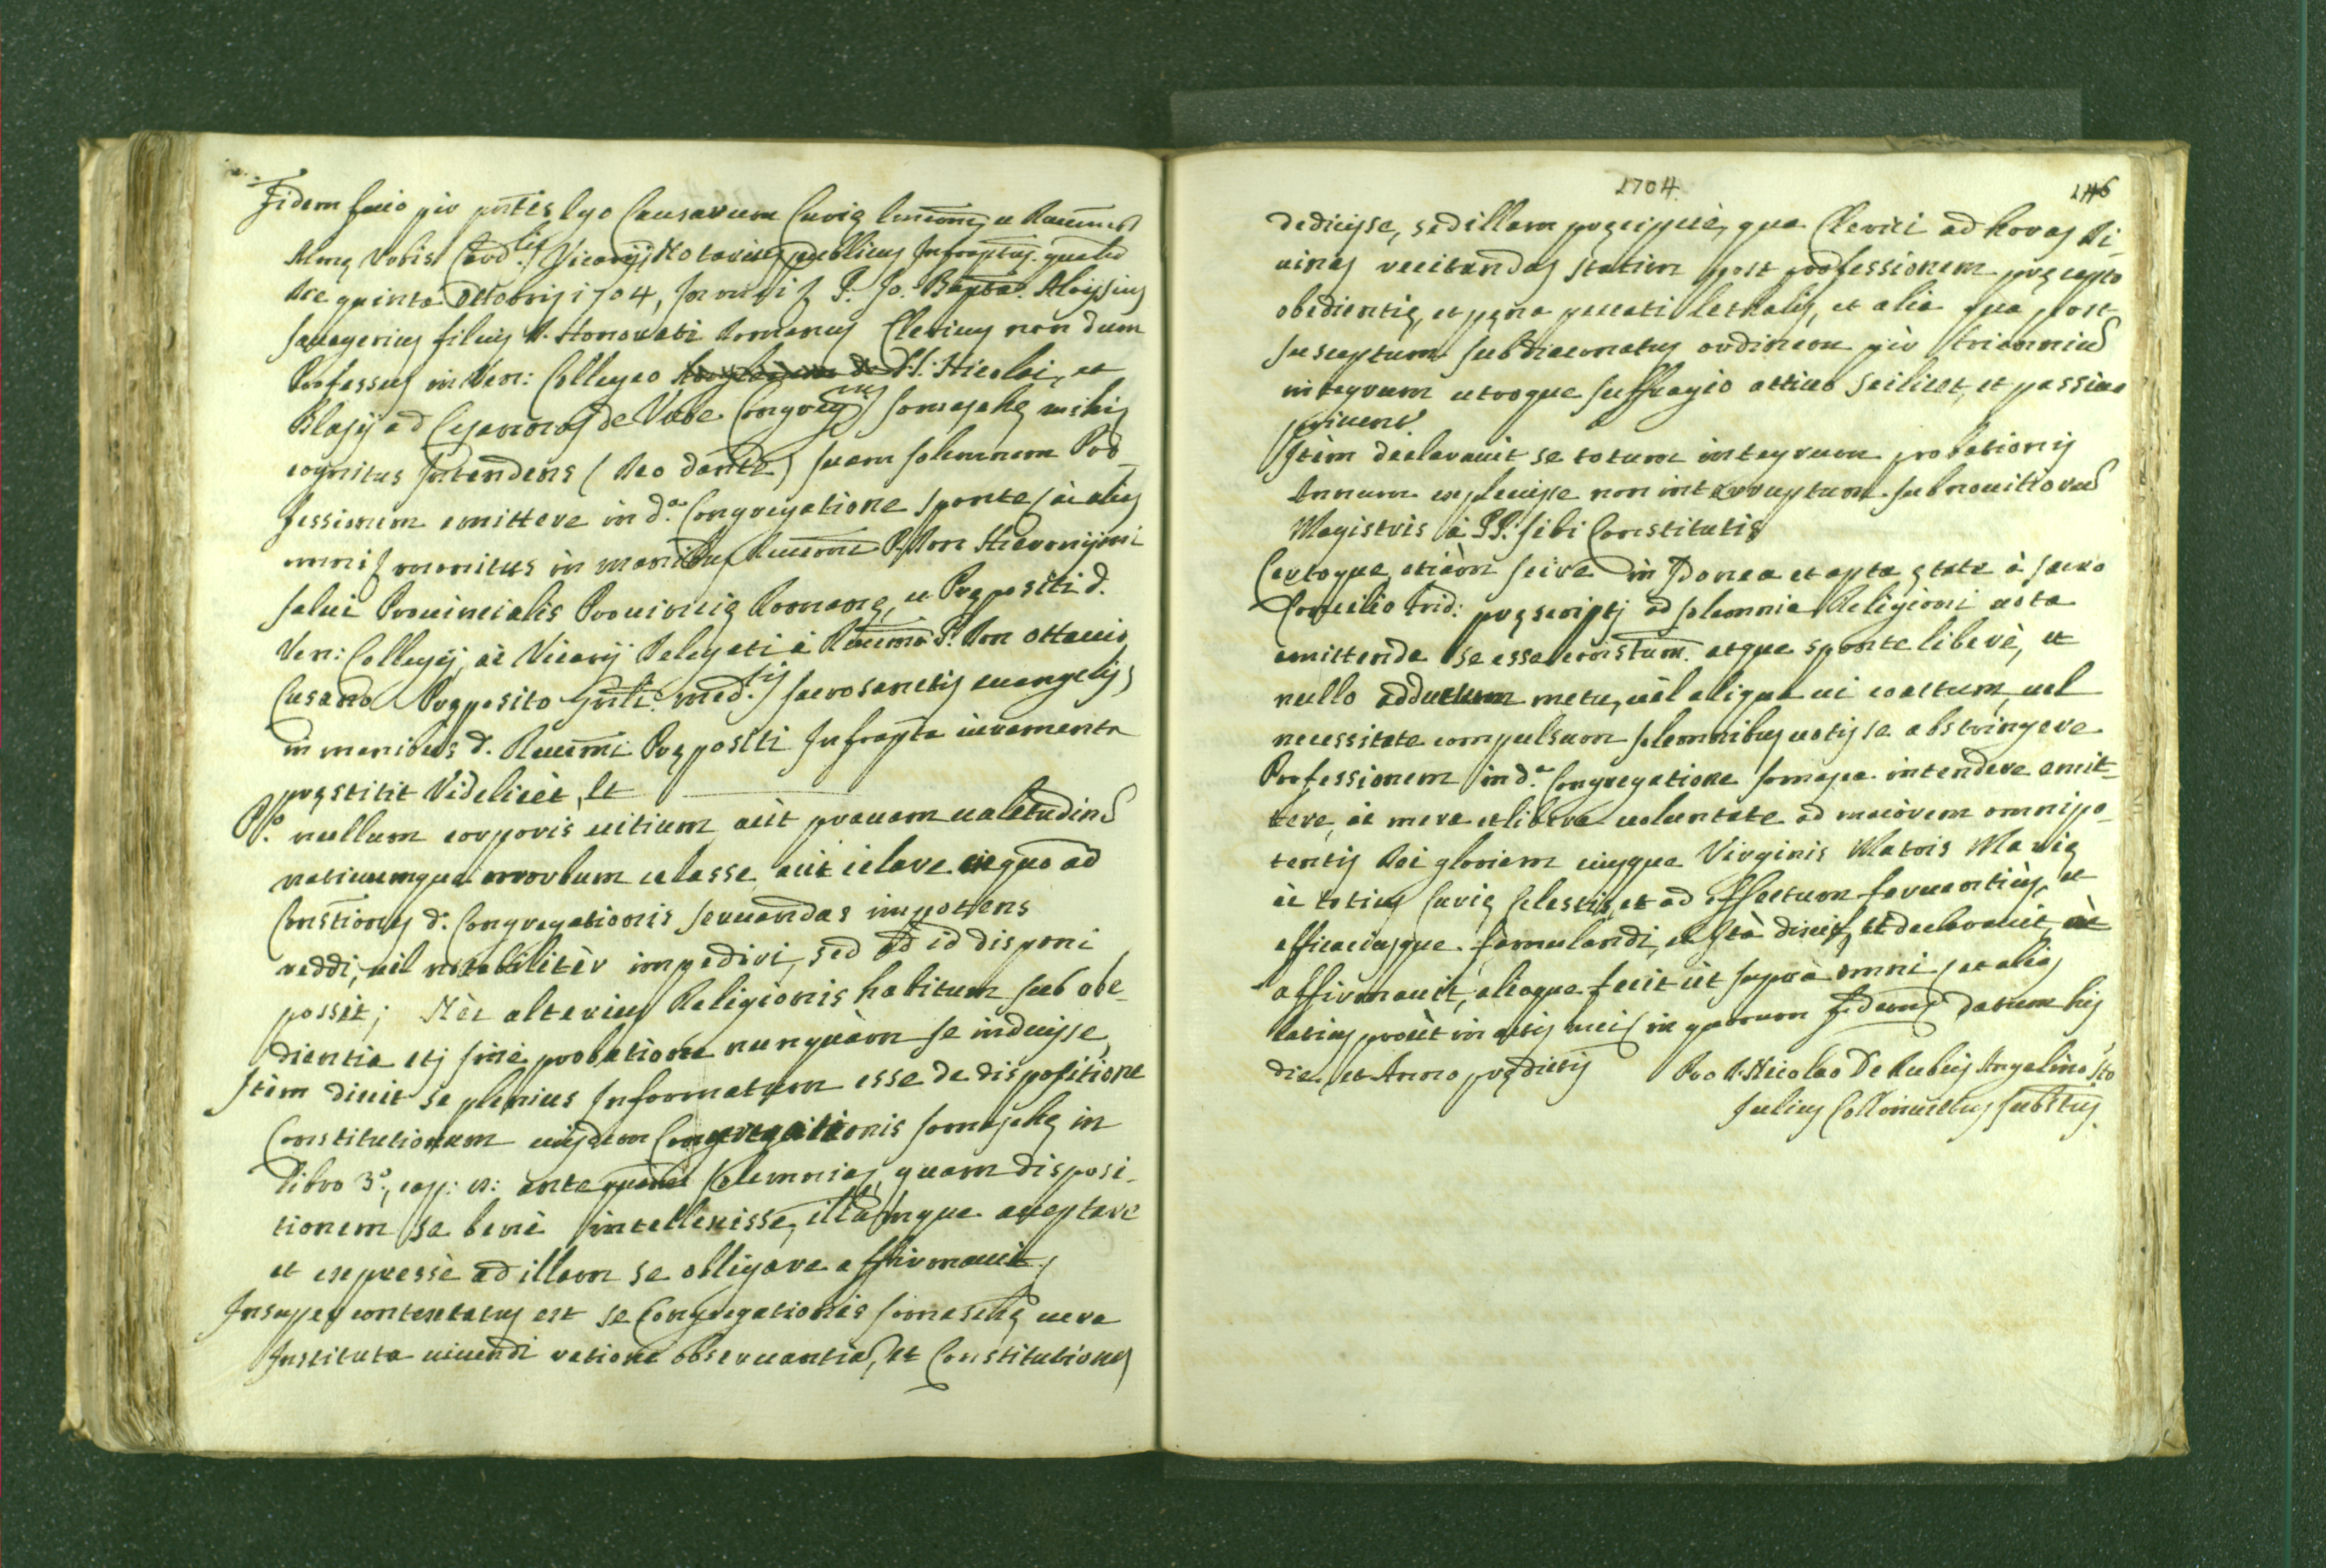 Fidem facio per pñtes Ego Causarum Curię et
Almę Vrbis Card.lis Vicarij Notarius publicus Infraptus. qualit
die quinta Octobris 1704, P. Jo. Bapta. Aloysius
filius D. Honorati Romanus Clericus non dum
Professus in Ven: Collegio SS. Nicolai, et
Blasij ad Cesarinos de Vrbe Congreg.nis Somaschę mihi
cognitus Intendens (Deo dante) suam solemnem Pro-
fessionem emittere in d.a Congregatione sponte
omni monitus in manibus Reuermi P. Don Hieronijmi
Prouincialis Prouincię Romanę, et Prępositi d.
Ven: Collegij, ac Vicarij Delegati à Reuermo P. Don Ottauio
Cusano Pręposito Gñli. med.tis sacrosanctis euangelijs
in manibus d. Reuermi Prępositi Infrapta iuramenta
pręstitit Videlicèt, Et
P.o nullum corporis uitium aùt prauam ualetudinē
morbum celasse aùt celare ad
Constiones d. Congregationis seruandas impotens
reddi, uèl notabilitèr impediri, sed ad id disponi
possit; Nèc alterius Religionis habitum sub obe-
dientia etj sinè probatione nunquàm se induisse
Itèm dixit se plenius Informatum esse de dispositione
Constitutionum eiusdem Congregationis Somaschę in
Libro 3.o, cap: ante Solemnia, quam disposi-
tionem se benè intellexisse, illàmque acceptare
et expressè ad illam se obligare affirmauit,
Insuper contentatus est se Congregationis Somaschę uera
Instituta uiuendi ratione obseruantia, et Constitutiones
1704.
146
dedicisse, sed illam pręcipuè, qua Clerici ad horas di-
uinas recitandas statim post professionem pręcepto
obedientię, et pęna peccati lethalis, et alia qua post
susceptum subdiaconatus ordinem pèr triennium
integrum utroque suffragio actiuo scilicet, et passiuo
priuent.r
Itèm declarauit se totum integrum probationis
Annum expleuisse non interruptum sub nouitiorum
Magistris à PP. sibi Constitutis
Certoque etiàm scire in Idonea et apta ętate à sacro
Concilio Trid: pręscriptj ad solemnia Religioni uota
emittenda se esse constum. atque sponte liberè, et
nullo adductum metu, uèl aliqua ui coactum, uel
necessitate compulsum solemnibus uotis se abstringere
Professionem in d.a Congregatione Somasca intendere emit-
tere, ac mera et libera uoluntate ad maiòrem omnipo-
tentis Dei gloriam eiusque Virginis Matris Marię
àc totius Curię Celestis, et ad effectum feruentius, et
efficaciusque famulandi, et Ità dixit, et declarauit, àc
affirmauit, aliàque fecit ùt suprà omni et alias
latius proùt in actis meis in quorum fidem Datum his
die, et Anno prędictis Pro D. Nicolao De Rubeis Angelino
Julius substus.